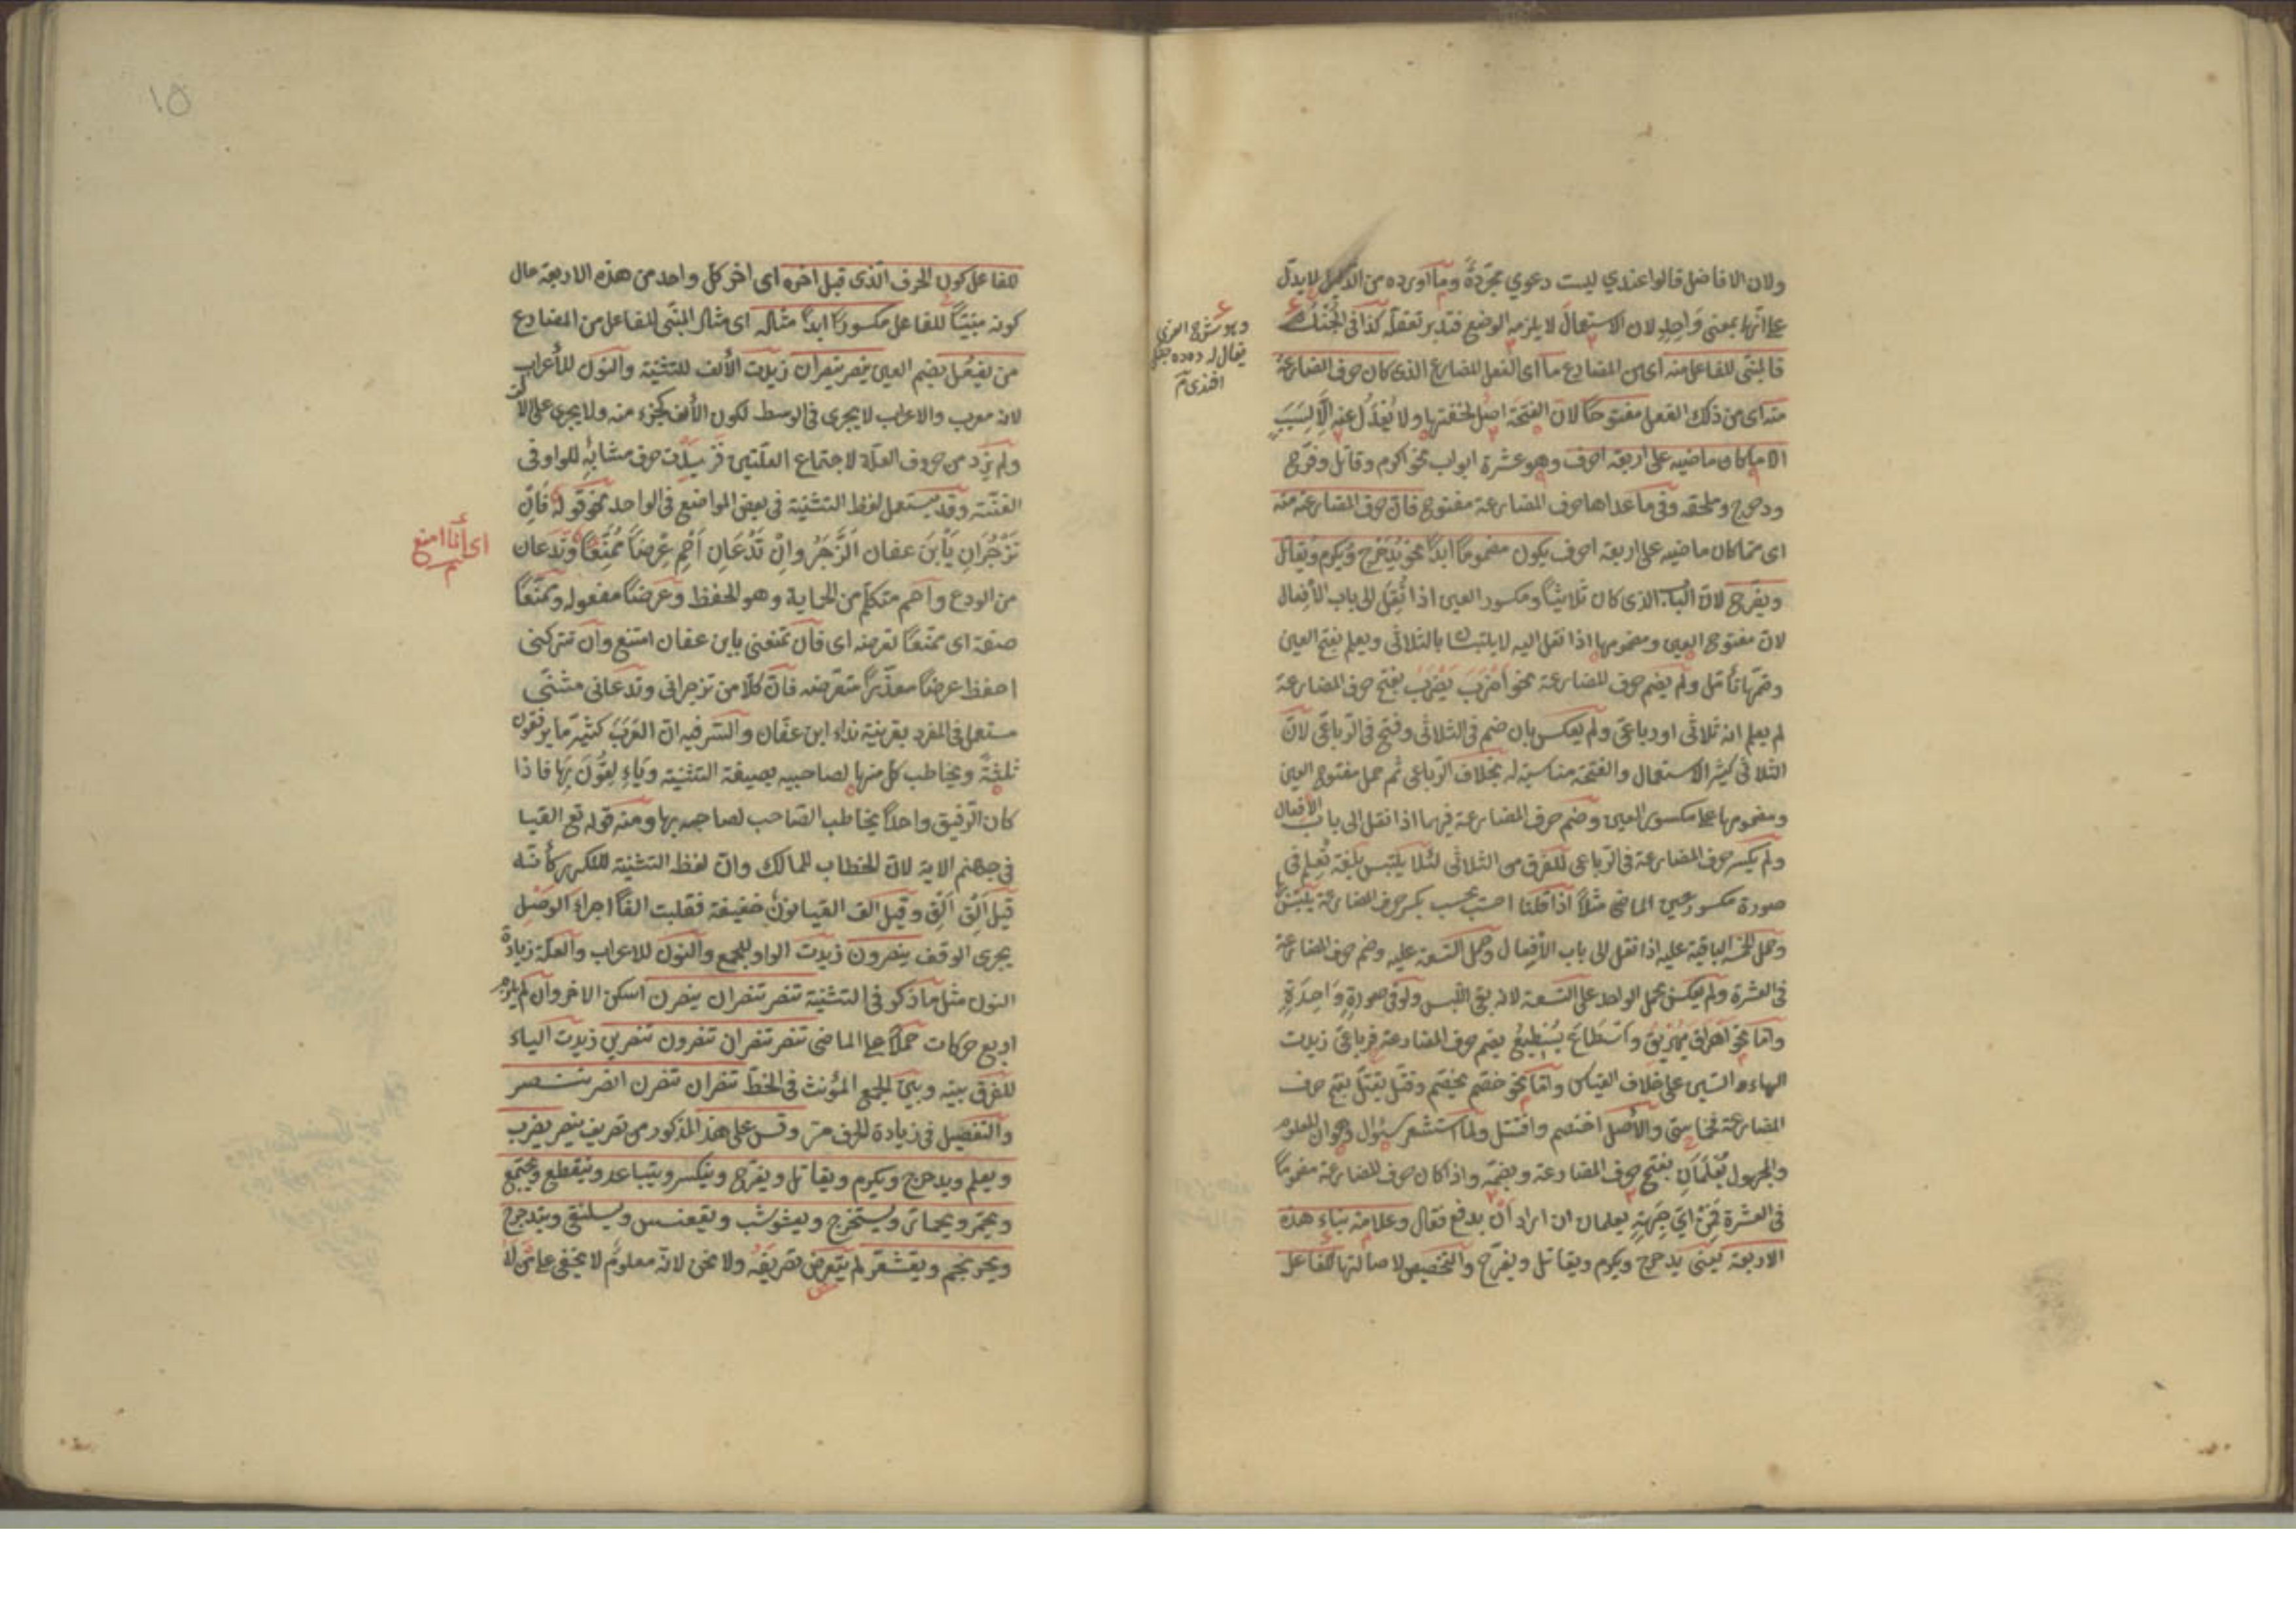 ولان الافاضل قالوا عندي ليست دعوي مجردةً وما اورده من الدليل لا يدلّ
على انها بمعنى واحد لان الاستعمال لا يلزمه الوضع فتدبر تعقله كذا فى
فالمبنى للفاعل منه اى من المضارع ما اى الفعل المضارع الذى كان حرف المضارعة
منه اى من ذلك الفعل مفتوحًا لان الفتحة اصل لخفتها ولا يُعْدَلُ عنه الّا لِسَبَبٍ
الا ما كان ماضيه على اربعة احرف وهو عشرة ابواب نحو اكرم وقاتل وفرّح
ودحرج وملحقه وفى ما عداها حرف المضارعة مفتوح فانّ حرف المضارعة منه
اى مما كان ماضيه على اربعة احرف يكون مضمومًا ابدًا نحو يُدَحْرِجُ ويُكرم ويُقاتل
ويفرّح لانّ الباب الذى كان ثلاثيًا ومكسور العين اذا نُقِلَ الى باب الأفعال
لانّ مفتوح العين ومضمومها اذا نقل اليه لا يلتبسان بالثلاثى ويعلم بفتح العين
وضمّها تأمّل ولَم يضم حرف المضارعة نحو اَضْرَبَ يَضْرِبُ بفتح حرف المضارعة
لم يعلم انه ثلاثى او رباعىّ ولم يعكس بان ضم فى الثلاثى وفتح فى الرّباعىّ لانّ
الثلاثى كثير الاستعمال والفتحة مناسبة له بخلاف الرّباعى ثم حمل مفتوح العين
ومضمومها على مكسور العين وضم حرف المضارعة فيهما اذا نقل الى باب الأفعال
ولم يكسر حرف المضارعة فى الرّباعى للفرق من الثلاثى لئلا يلتبس بلغة تِعلم فى
صورة مكسور عين الماضى مثلًا اذا قلنا احسب يحسب بكسر حرف المضارعة يلتبس بها
وحمل الخمسة الباقية عليه اذا نقل الى باب الأفعال وحمل التسعة عليه وضم حرف المضارعة
فى العشرة ولم يعكس بحمل الواحد على التسعة لانه بقى اللبس ولو فى صورةٍ وَاحِدَةٍ
وامّا نحو اَهراق يُهَرِيقُ واَسْطَاعَ يُسْطِيعُ بضم حرف المضارعة فرباعىّ زيدت
الهاء والسّين على خلاف القياس وامّا نحو خصّم يخصّم وقتّل يقتّل بفتح حرف
المضارعة فخماسىّ والأصل اختصم واقتتل ولمّا استشعر سؤال وهو ان المعلوم
والمجهول يُعْلَمَانِ بفتح حرف المضارعة وبضمّه واذا كان حرف المضارعة مضمومًا
فى العشرة فَمِنْ اَىِّ جِهَةٍ يعلمان ان اراد اَنْ يدفع فقال وعلامة بناء هذه
الاربعة يعنى يدحرج ويكرم ويقاتل ويفرّح والتخصيص لاصالتها للفاعل
وهو شرح العزى
يقال له ده ده جنكى
افندى
للفاعل كون الحرف الّذى قبل اخره اى اخر كلّ واحد من هذه الاربعة حال
كونه مبنيًّا للفاعل مكسورًا ابدًا مثاله اى مثال المبنى للفاعل من المضارع
من يفعُل بضم العين ينصر ينصران زيدت الألف للتثنية والنون للأعراب
لانه معرب والاعراب لا يجرى فى الوسط لكون الألف كجزء منه ولا يجرى على الألف
ولم يزد من حروف العلّة لاجتماع العلّتين فزيدت حرف مشابه للواو فى
الغنّة وقد يستعمل لفظ التثنية فى بعض المواضع فى الواحد نحو قوله فَاِنْ
تَزْجُرَانِ يَابْنَ عفان اَنْزَجِرْ واِنْ تَدَعَانِ اَحْمِ عِرْضًا مُمَنَّعًا وتَدَعان
من الودع واَحم متكلم من الحماية وهو الحفظ وعِرضًا مفعوله وممنّعًا
صفته اى ممنّعًا تعرضه اى فان تمنعنى يابن عفان امتنع وان تتركنى
احفظ عرضًا معذّرًا متعرضه فانّ كلًا من تزجرانى وتدعانى مثنّى
مستعمل فى المفرد بقرينة نداء ابن عفّان والسّر فيه ان العَرَبَ كثيرًا ما يرفقون
ثلثة ويخاطب كل منها لصاحبيه بصيغة التثنية
كان الرّفيق واحدًا يخاطب الصّاحب لصاحبه بها ومنه قوله تع القيا
فى جهنم الاية لانّ الخطاب لمالك وانّ لفظ التثنية للتكرير كأنّه
قيل اَلْقِ اَلْقِ وقيل الف القيا نونٌ خفيفة فقلبت الفًا اجراء الوصْلِ
يجرى الوقف ينصرون زيدت الواو للجمع والنون للاعراب والعلّة زيادة
النون مثل ما ذكر فى التثنية تنصر تنصران ينصرن اسكن الاخر وان لم يلزم
اربع حركات حملًا على الماضى تنصر تنصران تنصرون تنصرين زيدت الياء
للفرق بينه وبين الجمع المؤنث فى الخطّ تنصران تنصرن انصر ننصر
والتفصيل فى زيادة الحرف مرّ وقس على هذا المذكور من تصريف ينصر يضرب
ويعلم ويدحرج ويكرم ويقاتل ويفرّح وينكسر ويتباعد وينقطع ويجتمع
ويحمرّ ويحمارّ ويستخرج ويعشوشب ويقعنسس ويسلنقى ويتدحرج
ويحرنجم ويقشعرّ لم يتعرض تصريفه ولا نحن لانّه معلومٌ لا يخفى على مَنْ لَهُ
اى أنا امنع
١٥